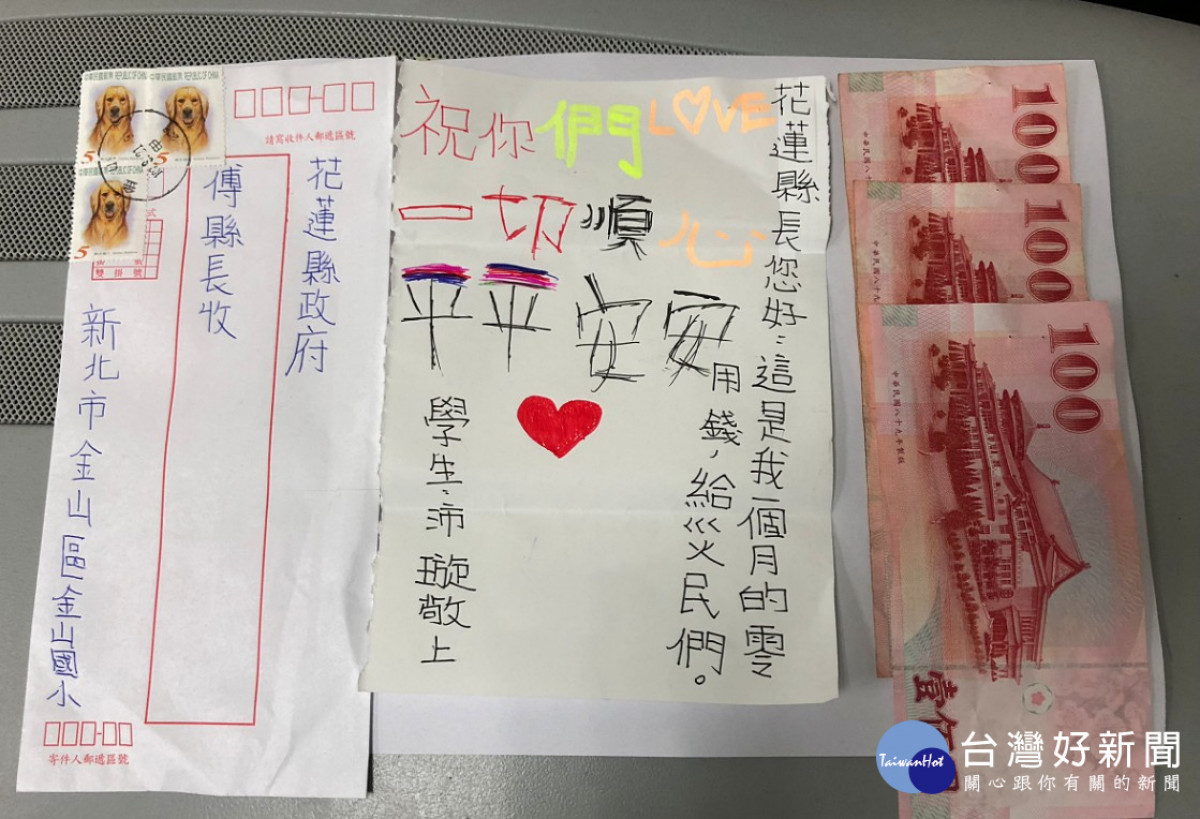 中華民國郵票 REPUBLIC OF CHINA
5
5
中華民國郵票 REPUBLIC OF CHINA
5
請寫收件人郵遞區號
花蓮縣政府
傅縣長收
雙掛號
新北市金山區金山國小
寄件人郵遞區號
花蓮縣長您好:這是我一個月的零
用錢,給災民們。
祝你們LOVE
一切順心
平平安安
學生:沛璇敬上
100
100
100
中華民國八十九年製版
TaiwanHot
台灣好新聞
關心跟你有關的新聞